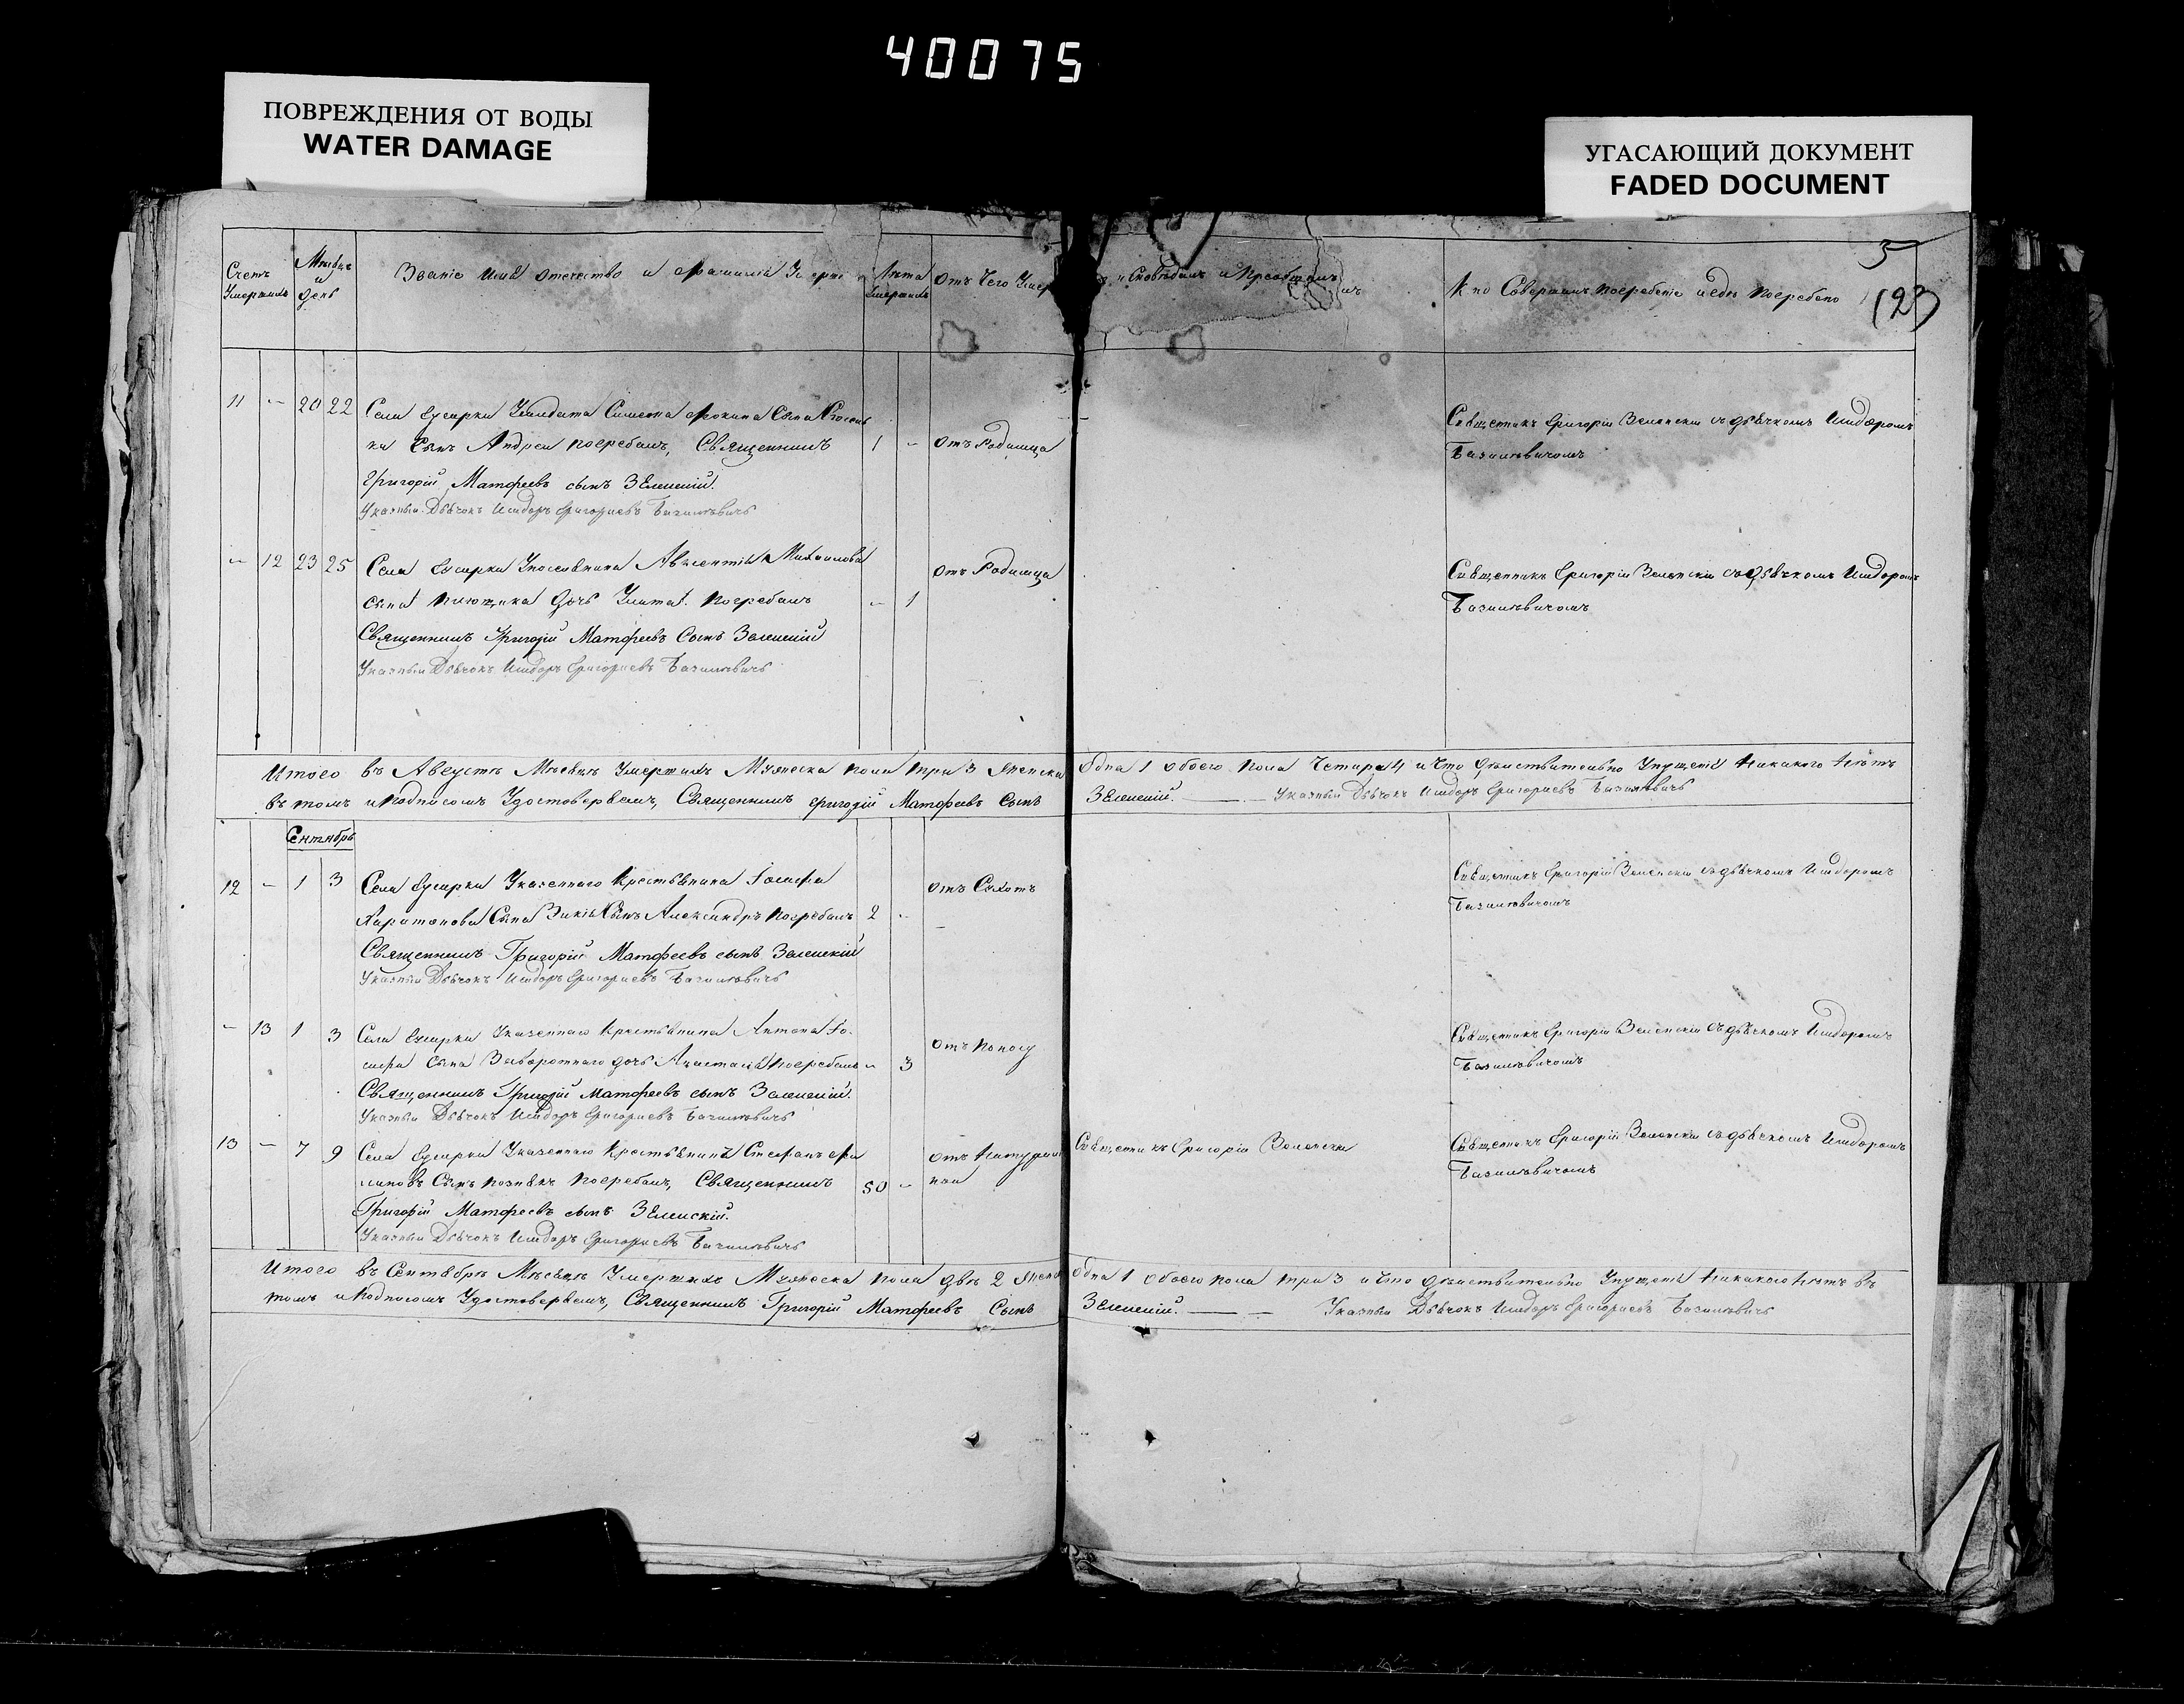 40075
ПОВРЕЖДЕНИЯ ОТ ВОДЫ
WATER DAMAGE
УГАСАЮЩИЙ ДОКУМЕНТ
FADED DOCUMENT
5
123
Счетъ Умершихъ
и день
Званіе Имя отечество и фамилія
Лѣта Умершихъ
Отъ Чего
Кто Совершилъ погребеніе и гдѣ погребено
11 — 20 22
Села Андреи погребалъ, Священникъ 1 - Отъ Родимца
Григорій Матфеевъ сынъ Зеленскій.
Указный Дьячокъ Исидоръ Григориевъ Базилевичъ
Священникъ Григорій Зеленски съ дьячкомъ Исидоромъ
Базилевичомъ
— 12 23 25
Села Михаилова
Отъ Родимца
сына дочь погребалъ - 1
Священникъ Григорій Матфеевъ Сынъ Зеленскій
Указный Дьячокъ Исидоръ Григориевъ Базилевичъ
Священникъ Григорій Зеленски съ дьячкомъ Исидоромъ
Базилевичомъ
Итого въ Августѣ Мѣсяцѣ Умершихъ Мужеска пола три 3 женска одна 1 обоего пола Четири 4 и Что дѣиствительно Упущенія никакого нѣтъ
въ томъ и подписомъ Удостоверяемъ, Священникъ Григорій Матфеевъ Сынъ Зеленскій. — Указный Дьячокъ Исидоръ Григориевъ Базилевичъ
Сентябрь
12 — 1 3
Села Указенного Крестьянина Іосифа
Отъ Сухотъ
Харитонова Сына Сынъ Александръ погребалъ 2 -
Священникъ Григорій Матфеевъ сынъ Зеленскій
Указный Дьячокъ Исидоръ Григориевъ Базилевичъ
Священникъ Григорій Зеленски съ дьячкомъ Исидоромъ
Базилевичомъ
— 13 1 3
Села Указенного Крестьянина Антона Іо-
Отъ Поносу
сифа Сына дочь Анастасія погребалъ - 3
Священникъ Григорій Матфеевъ сынъ Зеленскій.
Указный Дьячокъ Исидоръ Григориевъ Базилевичъ
Священникъ Григорій Зеленскіи съ дьячкомъ Исидоромъ
Базилевичомъ
13 — 7 9
Села Указенного Крестьянина Стефанъ Фи
липовъ Сынъ погребалъ, Священникъ 50 -
Григорій Матфеевъ сынъ Зеленскій.
Указный Дьячокъ Исидоръ Григориевъ Базилевичъ
Священникъ Григорій Зеленски
Священникъ Григорій Зеленски съ дьячкомъ Исидоромъ
Базилевичомъ
Итого въ Сентябрѣ Мѣсяцѣ Умершихъ Мужеска пола двѣ 2 женска одна 1 обоего пола три 3 и Что дѣиствительно Упущенія никакого нѣтъ въ
томъ и подписомъ Удостоверяемъ, Священникъ Григорій Матфеевъ Сынъ Зеленскій. — Указный Дьячокъ Исидоръ Григориевъ Базилевичъ